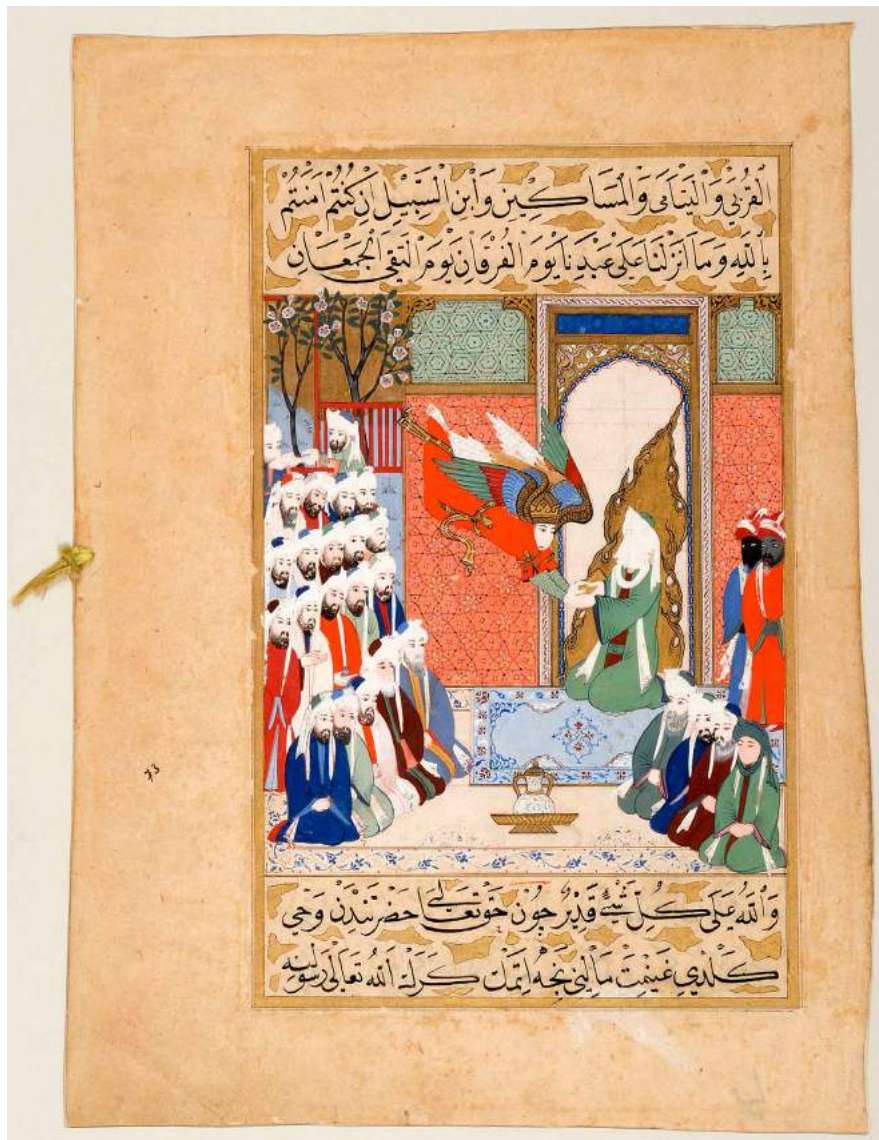 القُرْبٰى وَالْيَتَامٰى وَالْمَسَاكِينِ وَابْنِ السَّبِيلِ اِنْ كُنْتُمْ اٰمَنْتُمْ
بِاللّٰهِ وَمَا اَنْزَلْنَا عَلٰى عَبْدِنَا يَوْمَ الْفُرْقَانِ يَوْمَ الْتَقَى الْجَمْعَانِ
وَاللّٰهُ عَلٰى كُلِّ شَيْءٍ قَدِيرٌ چون حق تعالى حضرتندن وحي
كلدي غنيمت مالني نجه اتمك كرك الله تعالى رسولنه
73